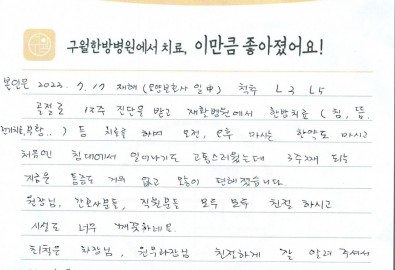 구월한방병원에서 치료, 이만큼 좋아졌어요!
본인은 2023. 7.17 재해 척추 L3 L5
골절로 12주 진단을 받고 재활병원에서 한방치료 (침, 뜸,
전기치료, 부항..) 등 치료를 하며 오전, 오후 마시는 한약도 마시고
처음엔 침대에서 일어나기도 고통스러웠는데 3주째 되니
지금은 통증도 거의 없고 모습이 편해졌습니다.
원장님, 간호사분들, 직원분들 모두 모두 친절 하시고
시설도 너무 깨끗하네요.
원무과장님 친절하게 잘 알려 주셔서